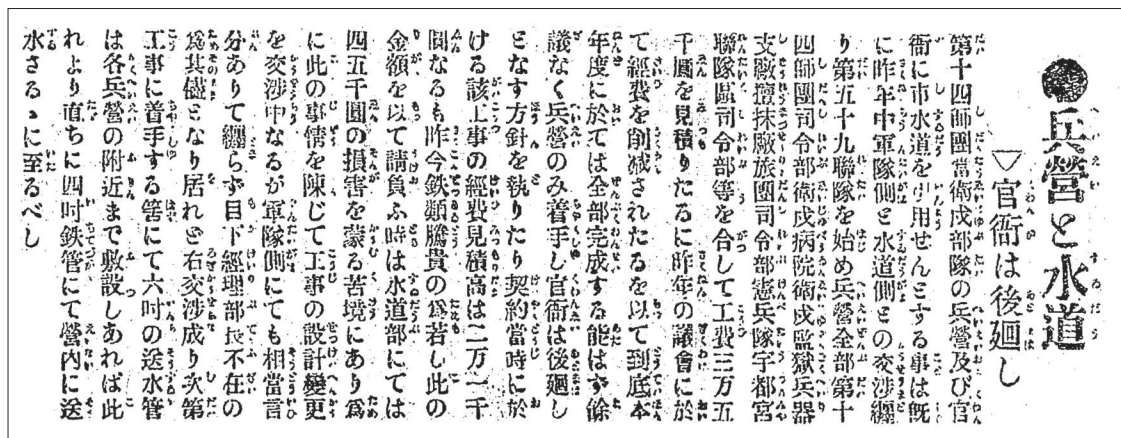 ●兵營と水道
▽官衙は後廻し
第十四師團當衛戍部隊の兵營及び官
衙に市水道を引用せんとする事は既
に昨年中軍隊側と水道側との交渉纒
り第五十九聯隊を始め兵營全部第十
四師團司令部衛戍病院衛戍監獄兵器
支廠糧秣廠旅團司令部憲兵隊宇都宮
聯隊區司令部等を合して工費三万五
千圓を見積りたるに昨年の議會に於
て經費を削减されたるを以て到底本
年度に於ては全部完成する能はず餘
議なく兵營のみ着手し官衙は後廻し
となす方針を執りたり契約當時に於
ける該工事の經費見積高は二万一千
圓なるも昨今鉄類騰貴の爲若し此の
金額を以て請負ふ時は水道部にては
四五千圓の損害を蒙る苦境にあり爲
に此の事情を陳じて工事の設計變更
を交渉中なるが軍隊側にても相當言
分ありて纒らず目下經理部長不在の
爲其儘となり居れど右交渉成り次第
工事に着手する筈にて六吋の送水管
は各兵營の附近まで敷設しあれば此
れより直ちに四吋鉄管にて營内に送
水さるゝに至るべし